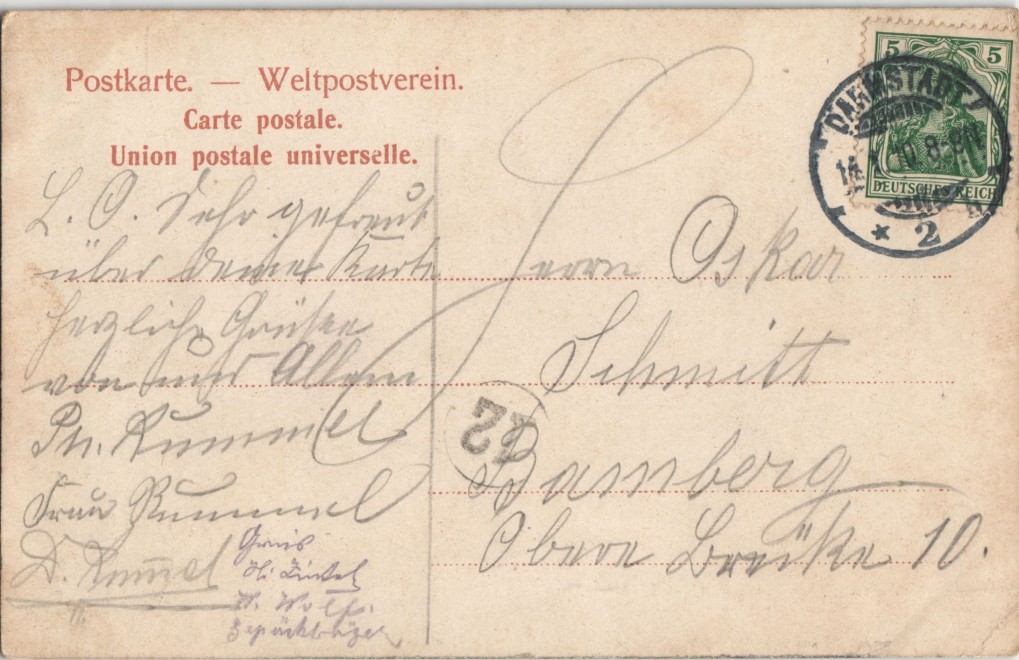 Postkarte. — Weltpostverein.
Carte postale.
Union postale universelle.
5 5
DEUTSCHES REICH
DARMSTADT
14. 10. 8-9N.
* 2
L. O. Sehr gefreut
über deine Karte
herzliche Grüsse
von uns Allen
Ph. Rummel
Frau Rummel
D. Rummel
Gruss
W. Wolf.
Gepäckträger
Herrn Oskar
Schmitt
Bamberg
Obere Brücke 10.
12